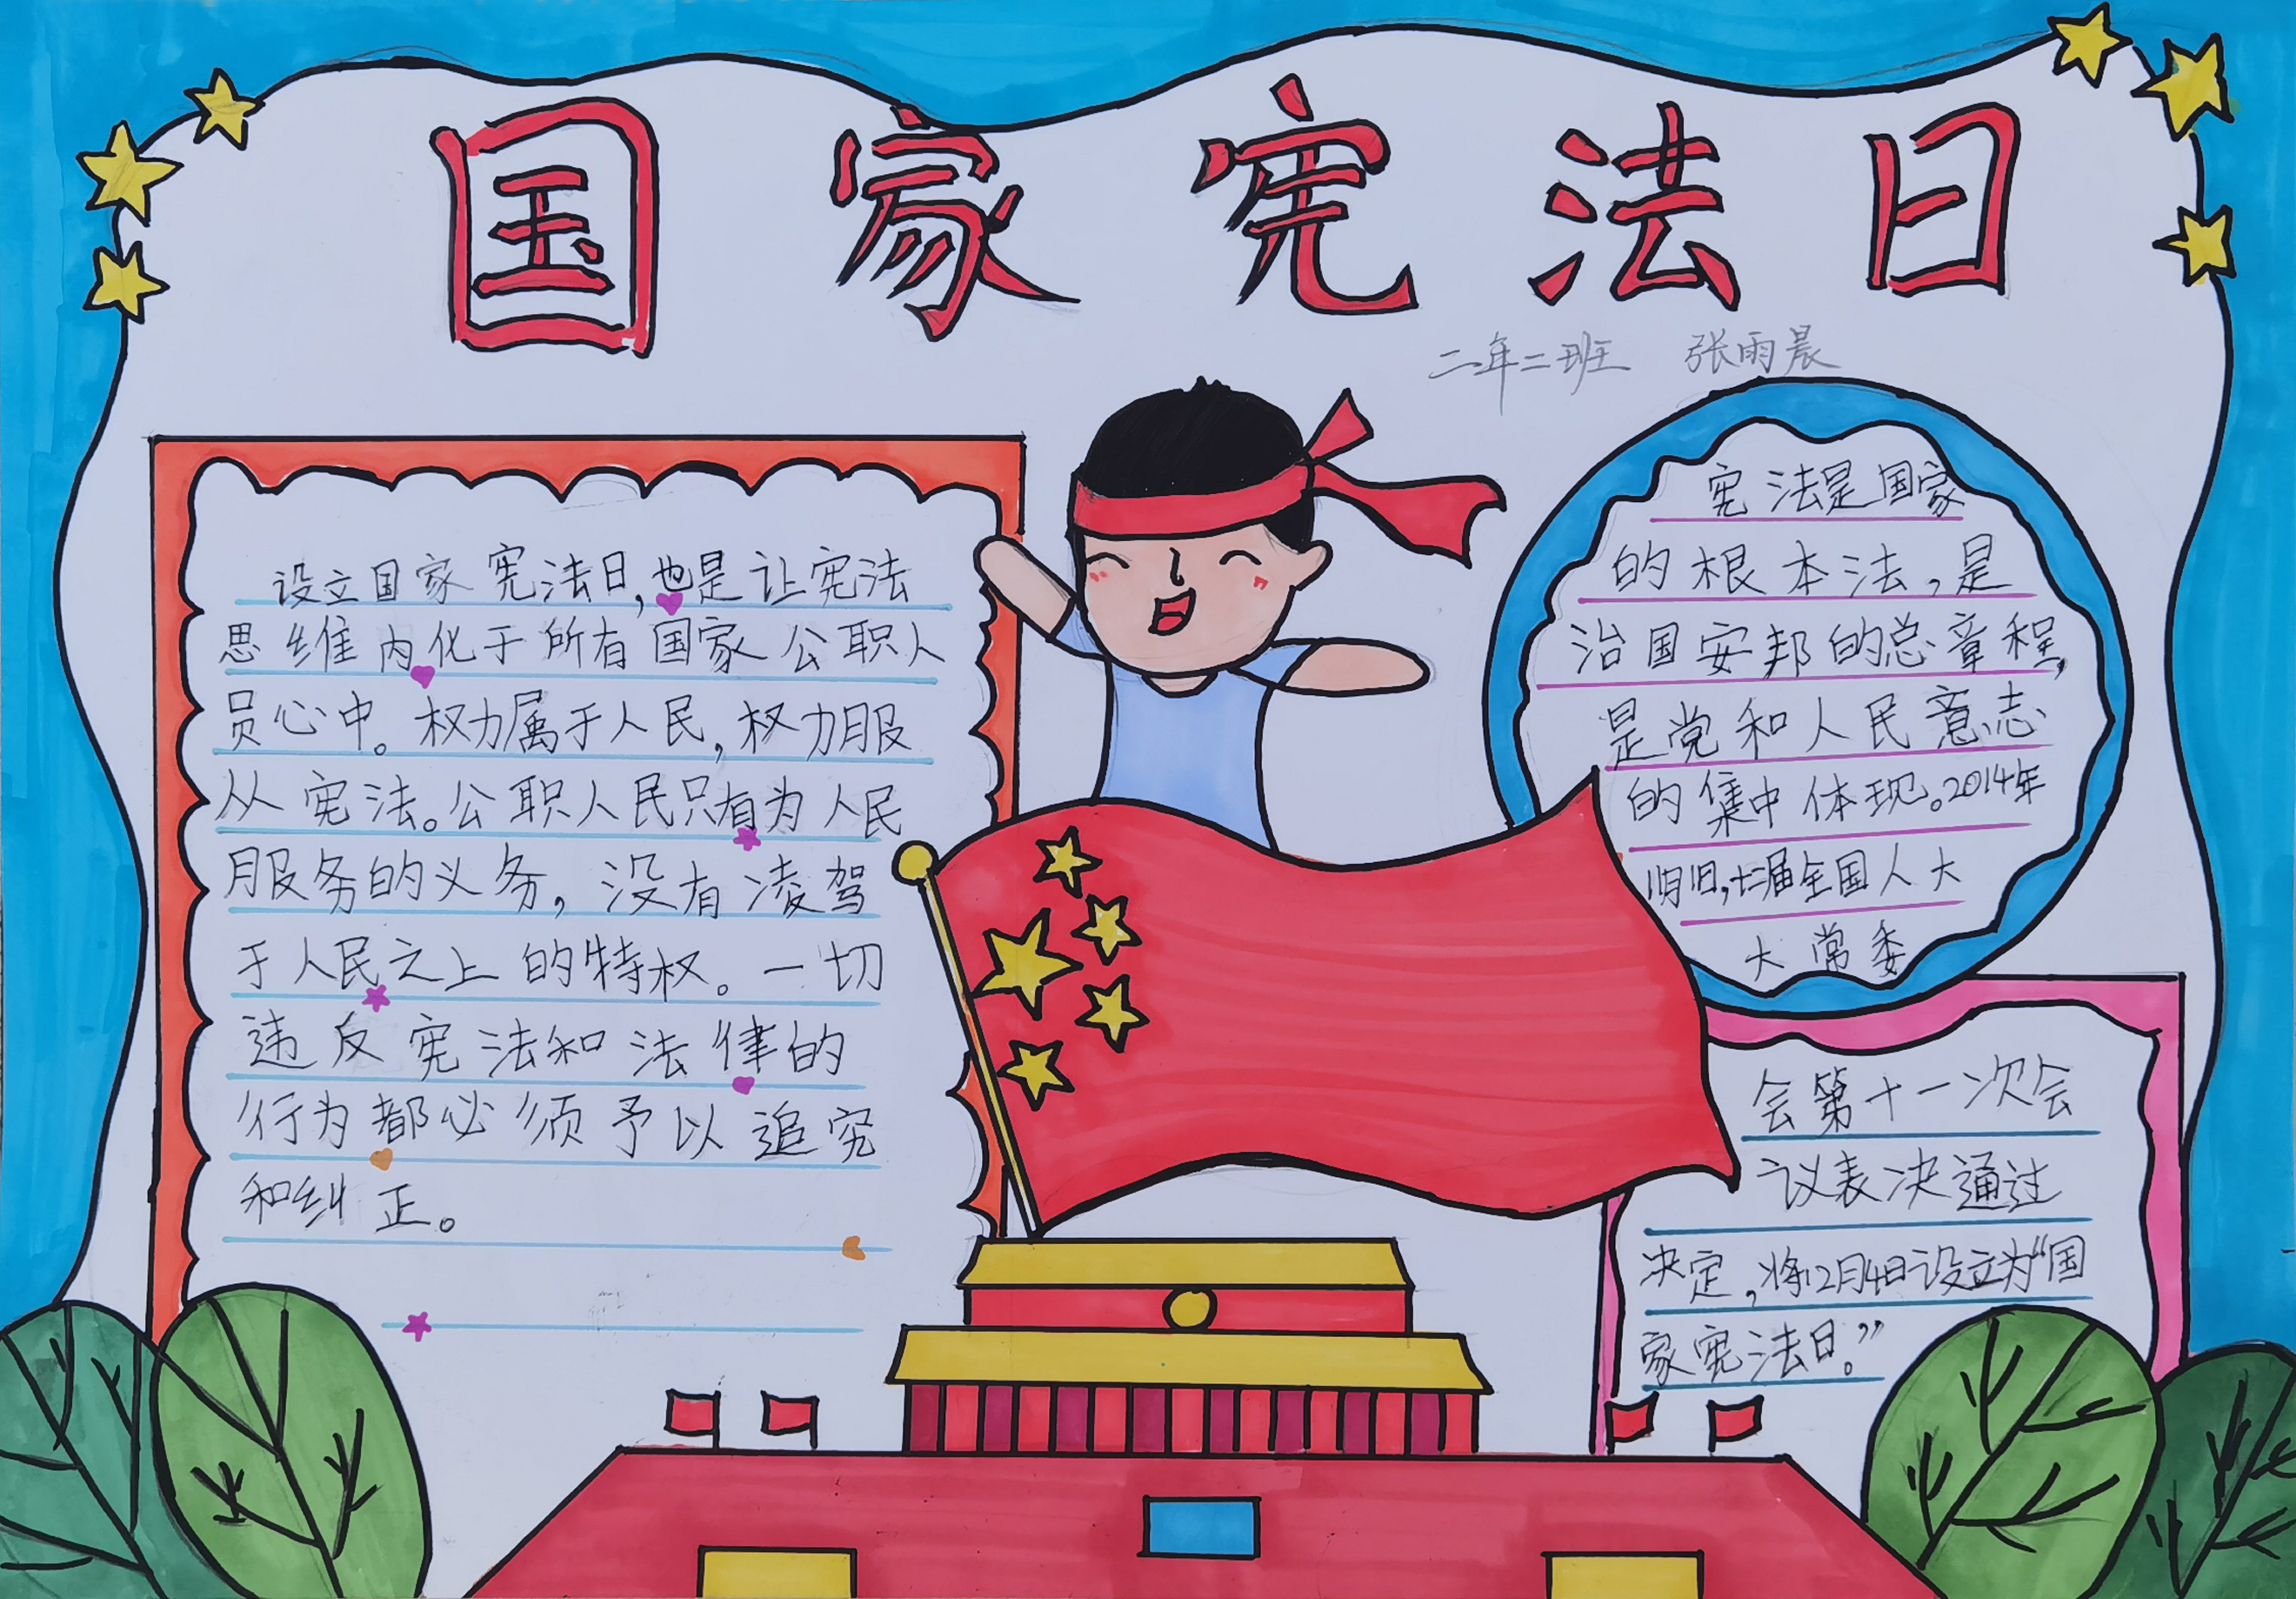 国家宪法日
二年二班 张雨晨
设立国家宪法日,也是让宪法
思维内化于所有国家公职人
员心中。权力属于人民,权力服
从宪法。公职人民只有为人民
服务的义务,没有凌驾
于人民之上的特权。一切
违反宪法和法律的
行为都必须予以追究
和纠正。
宪法是国家
的根本法,是
治国安邦的总章程,
是党和人民意志
的集中体现。2014年
11月1日,十二届全国人大
大常委
会第十一次会
议表决通过
决定,将12月4日设立为“国
家宪法日。”